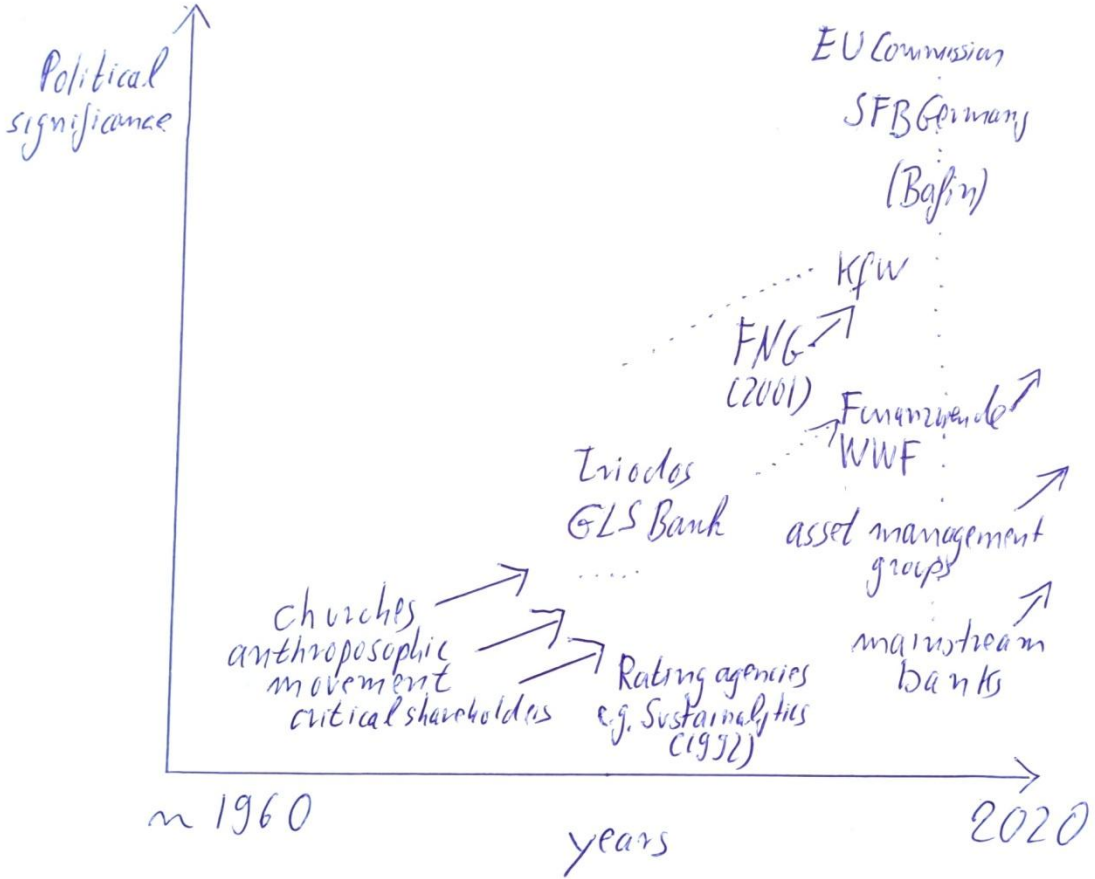 Political
significance
EU Commission
SFB Germany
(Bafin)
KfW
FNG
(2001)
Finanzwende
WWF
Triodos
GLS Bank
asset management
groups
churches
anthroposophic
movement
critical shareholders
Rating agencies
e.g. Sustainalytics
(1992)
mainstream
banks
~ 1960
years
2020